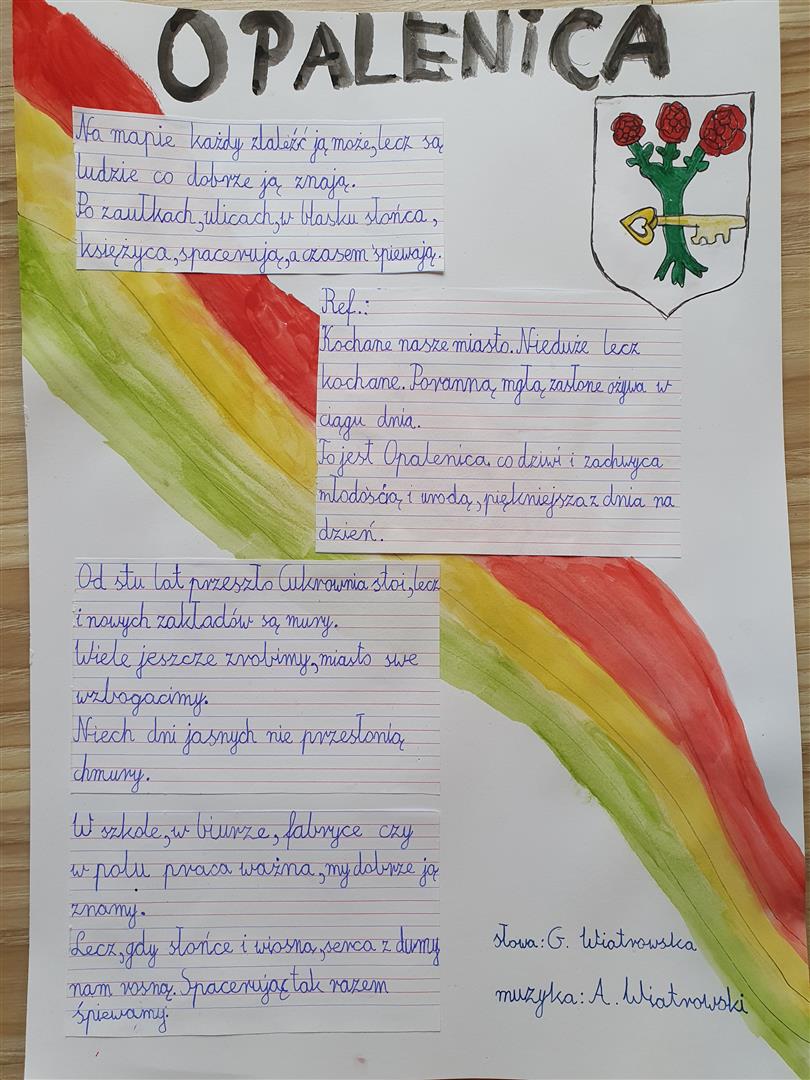 OPALENICA
Na mapie każdy zlaleźć ją może, lecz są
ludzie co dobrze ją znają.
Po zaułkach, ulicach, w blasku słońca,
księżyca, spacerują, a czasem śpiewają.
Ref.:
Kochane nasze miasto. Nieduże lecz
kochane. Poranną mgłą zasłone ożywa w
ciągu dnia.
To jest Opalenica. co dziwi i zachwyca
młodością i urodą, piękniejsza z dnia na
dzień.
Od stu lat przeszło Cukrownia stoi, lecz
i nowych zakładów są mury.
Wiele jeszcze zrobimy, miasto swe
wzbogacimy.
Niech dni jasnych nie przesłonią
chmury.
W szkole, w biurze, fabryce czy
w polu praca ważna, my dobrze ją
znamy.
Lecz, gdy słońce i wiosna, serca z dumy
nam rosną. Spacerując tak razem
śpiewamy.
słowa: G. Wiatrowska
muzyka: A. Wiatrowski